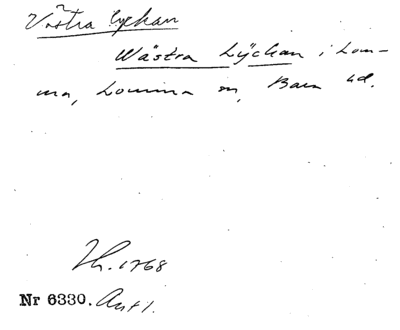 Västra Lyckan
Wästra Lÿckan i Lom-
ma, Lomma sn, Bara hd.
Th. 1768
Nr 6330. Ant 1.